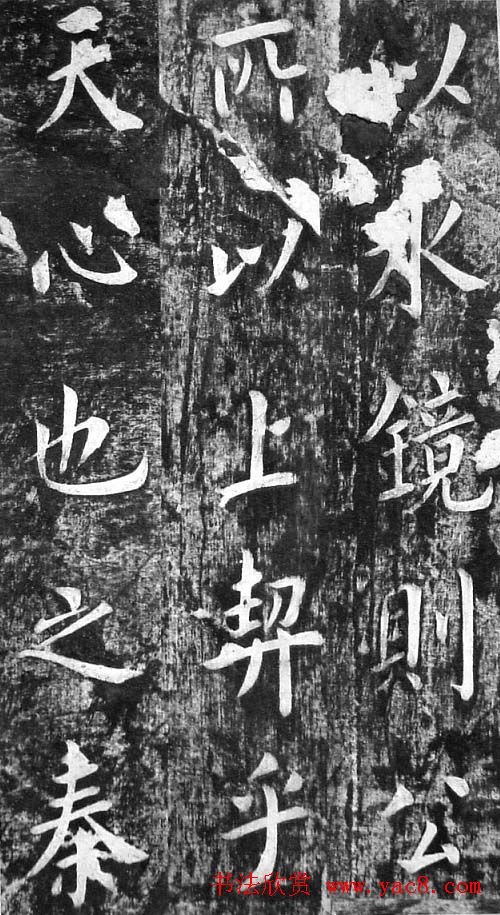 以水鏡則公
所以上契乎
天心也之秦
书法欣赏 www.yac8.com